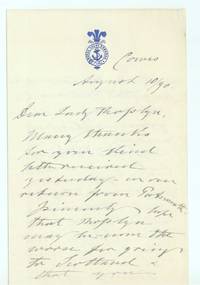 Cowes
August 10/90
Dear Lady Rosslyn,
Many thanks
for your kind
letter received
yesterday on our
return from
I sincerely hope
that Rosslyn
may be none the
worse for going
to Scotland &
that you